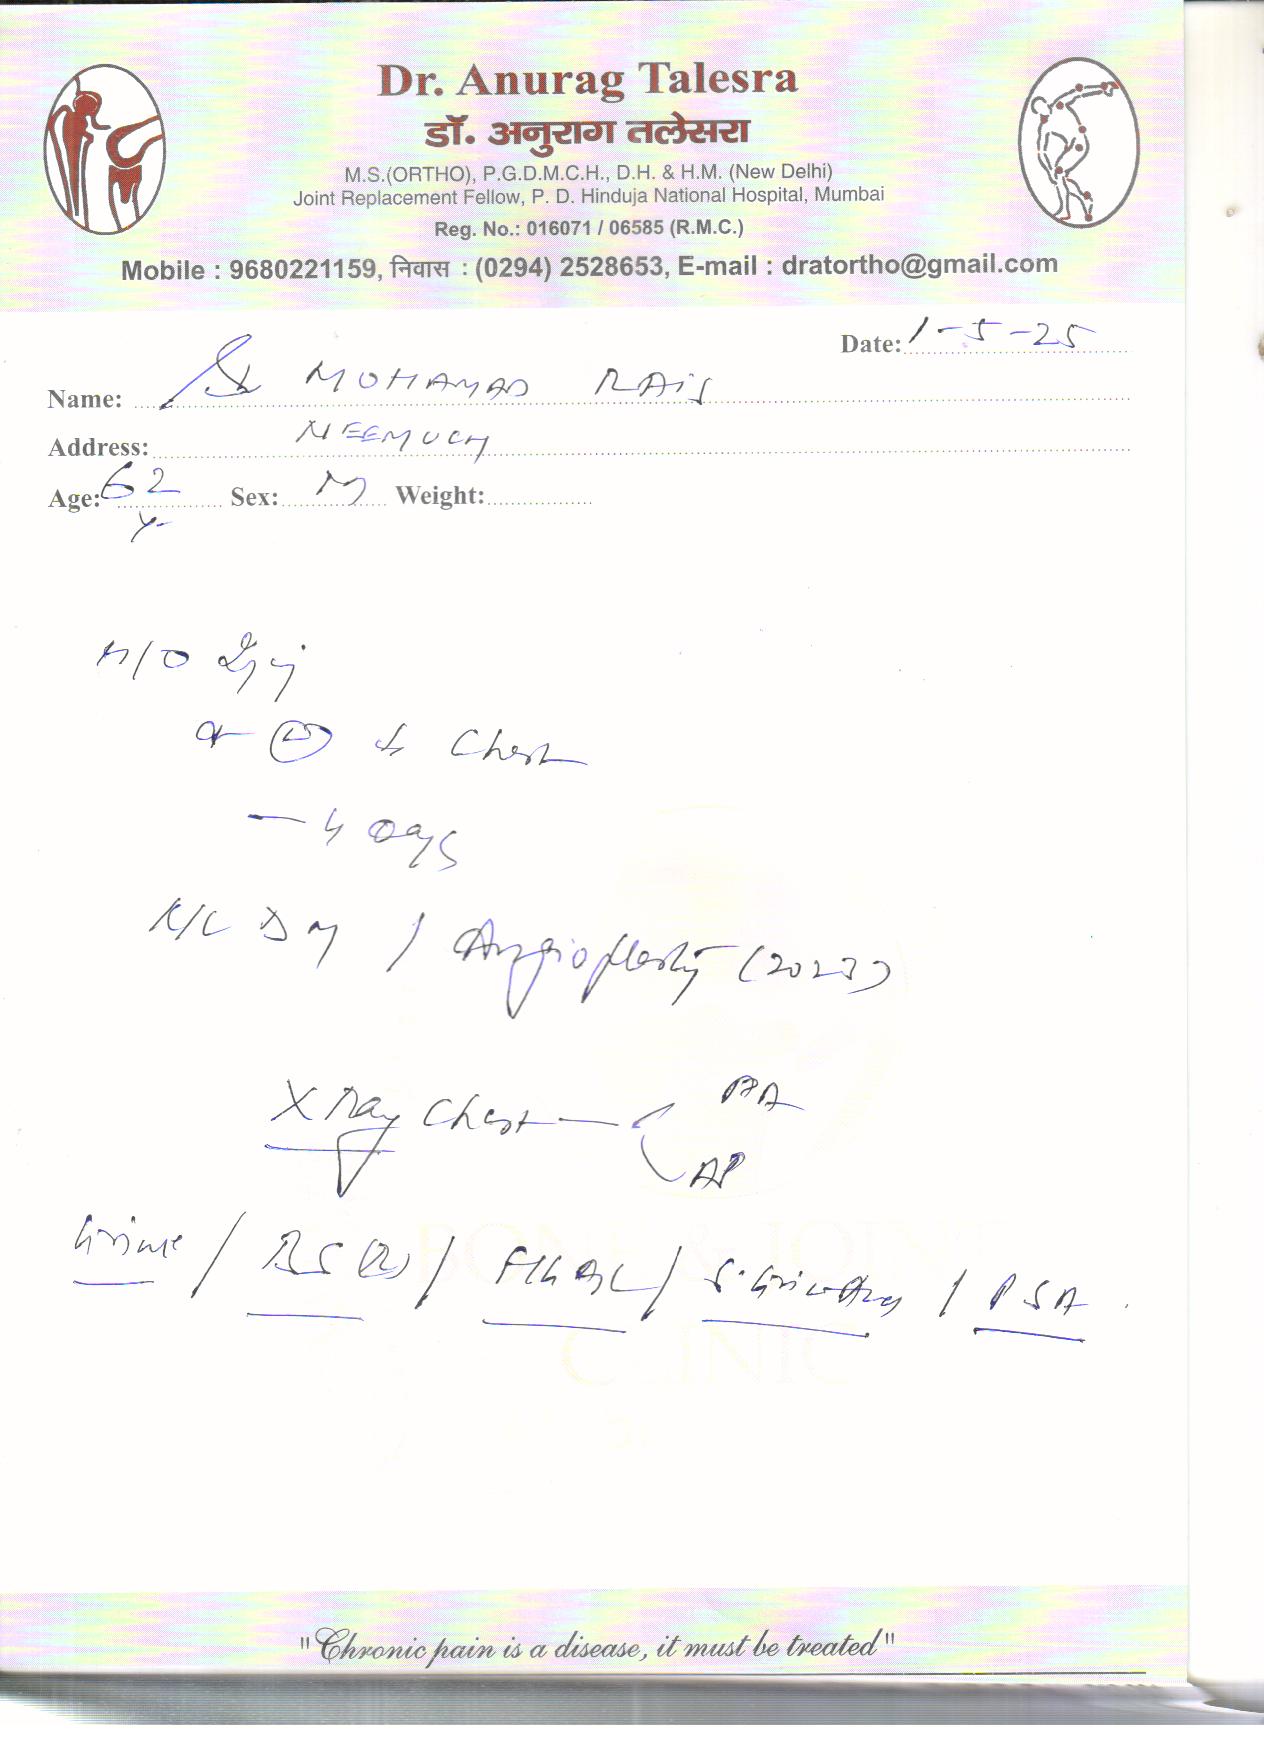 Dr. Anurag Talesra
डॉ. अनुराग तलेसरा
M.S.(ORTHO), P.G.D.M.C.H., D.H. & H.M. (New Delhi)
Joint Replacement Fellow, P. D. Hinduja National Hospital, Mumbai
Reg. No.: 016071 / 06585 (R.M.C.)
Mobile : 9680221159, निवास : (0294) 2528653, E-mail : dratortho@gmail.com
Date: 1-5-25
Name: MOHAMAD RAIS
Address: NEEMUCH
Age: 62 Sex: M Weight:
H/O
Chest
- 4 days
K/C DM / Angioplasty (2023)
X Ray Chest PA
AP
Urine / BS (R) / / / PSA
BONE & JOINT
CLINIC
"Chronic pain is a disease, it must be treated"